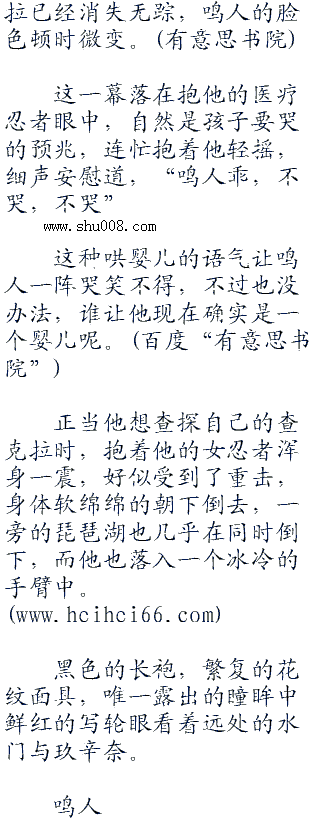 拉已经消失无踪，鸣人的脸
色顿时微变。(有意思书院)
这一幕落在抱他的医疗
忍者眼中，自然是孩子要哭
的预兆，连忙抱着他轻摇，
细声安慰道，“鸣人乖，不
哭，不哭”
www.shu008.com
这种哄婴儿的语气让鸣
人一阵哭笑不得，不过也没
办法，谁让他现在确实是一
个婴儿呢。(百度“有意思书
院”)
正当他想查探自己的查
克拉时，抱着他的女忍者浑
身一震，好似受到了重击，
身体软绵绵的朝下倒去，一
旁的琵琶湖也几乎在同时倒
下，而他也落入一个冰冷的
手臂中。
(www.hcihci66.com)
黑色的长袍，繁复的花
纹面具，唯一露出的瞳眸中
鲜红的写轮眼看着远处的水
门与玖辛奈。
鸣人